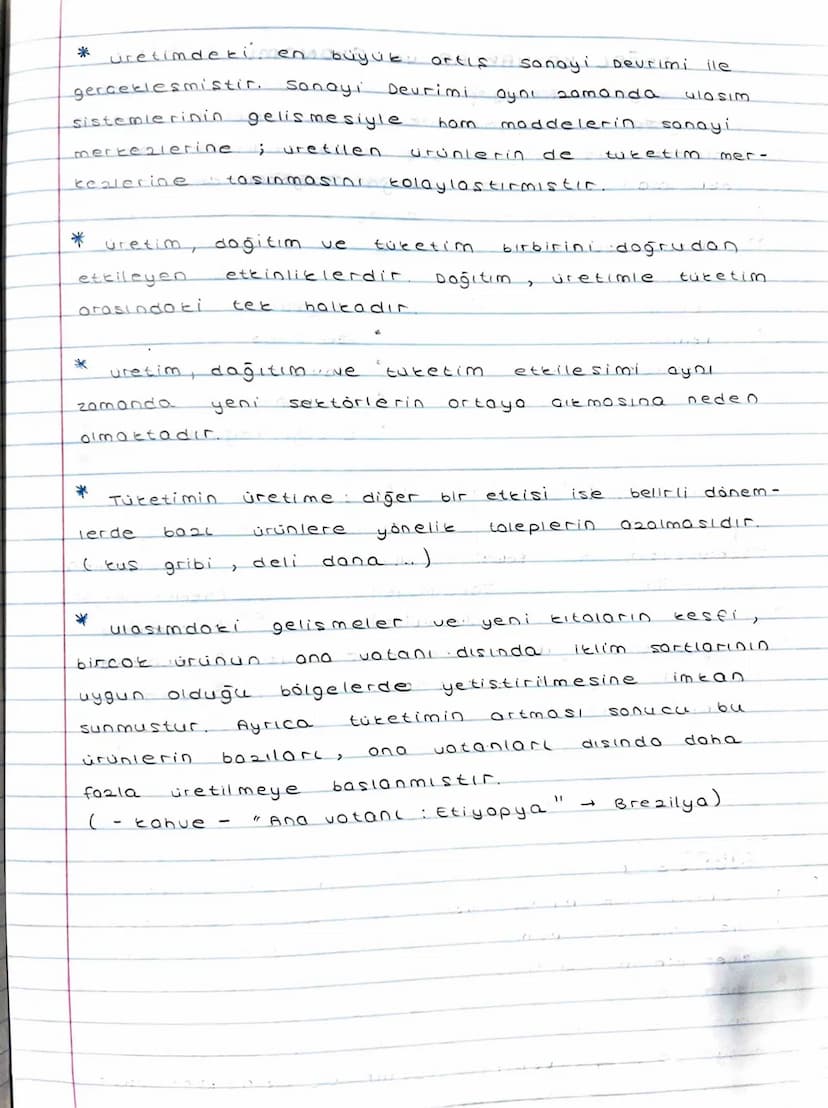 * üretimdeki en büyük artış sanayi Devrimi ile
gerçekleşmiştir. Sanayi Devrimi aynı zamanda ulaşım
sistemlerinin gelişmesiyle ham maddelerin sanayi
merkezlerine ; üretilen ürünlerin de tüketim mer-
kezlerine taşınmasını kolaylaştırmıştır.
* üretim, dağıtım ve tüketim birbirini doğrudan
etkileyen etkinliklerdir. Dağıtım, üretimle tüketim
arasındaki tek halkadır.
* üretim, dağıtım ve tüketim etkileşimi aynı
zamanda yeni sektörlerin ortaya çıkmasına neden
olmaktadır.
* Tüketimin üretime diğer bir etkisi ise belirli dönem-
lerde bazı ürünlere yönelik taleplerin azalmasıdır.
( kuş gribi, deli dana ...)
* ulaşımdaki gelişmeler ve yeni kıtaların keşfi,
birçok ürünün ana vatanı dışında iklim şartlarının
uygun olduğu bölgelerde yetiştirilmesine imkan
sunmuştur. Ayrıca tüketimin artması sonucu bu
ürünlerin bazıları, ana vatanları dışında daha
fazla üretilmeye başlanmıştır.
( - kahve - "Ana vatanı : Etiyopya" → Brezilya)